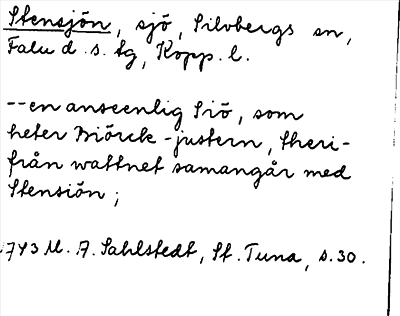 Stensjön, sjö, Silvbergs sn,
Falu d. s. tg, Kopp. l.
--en anseenlig Siö, som
heter Biörck-justern, theri-
från wattnet samangår med
Stensiön;
1743 M. A. Sahlstedt, St. Tuna, s. 30.